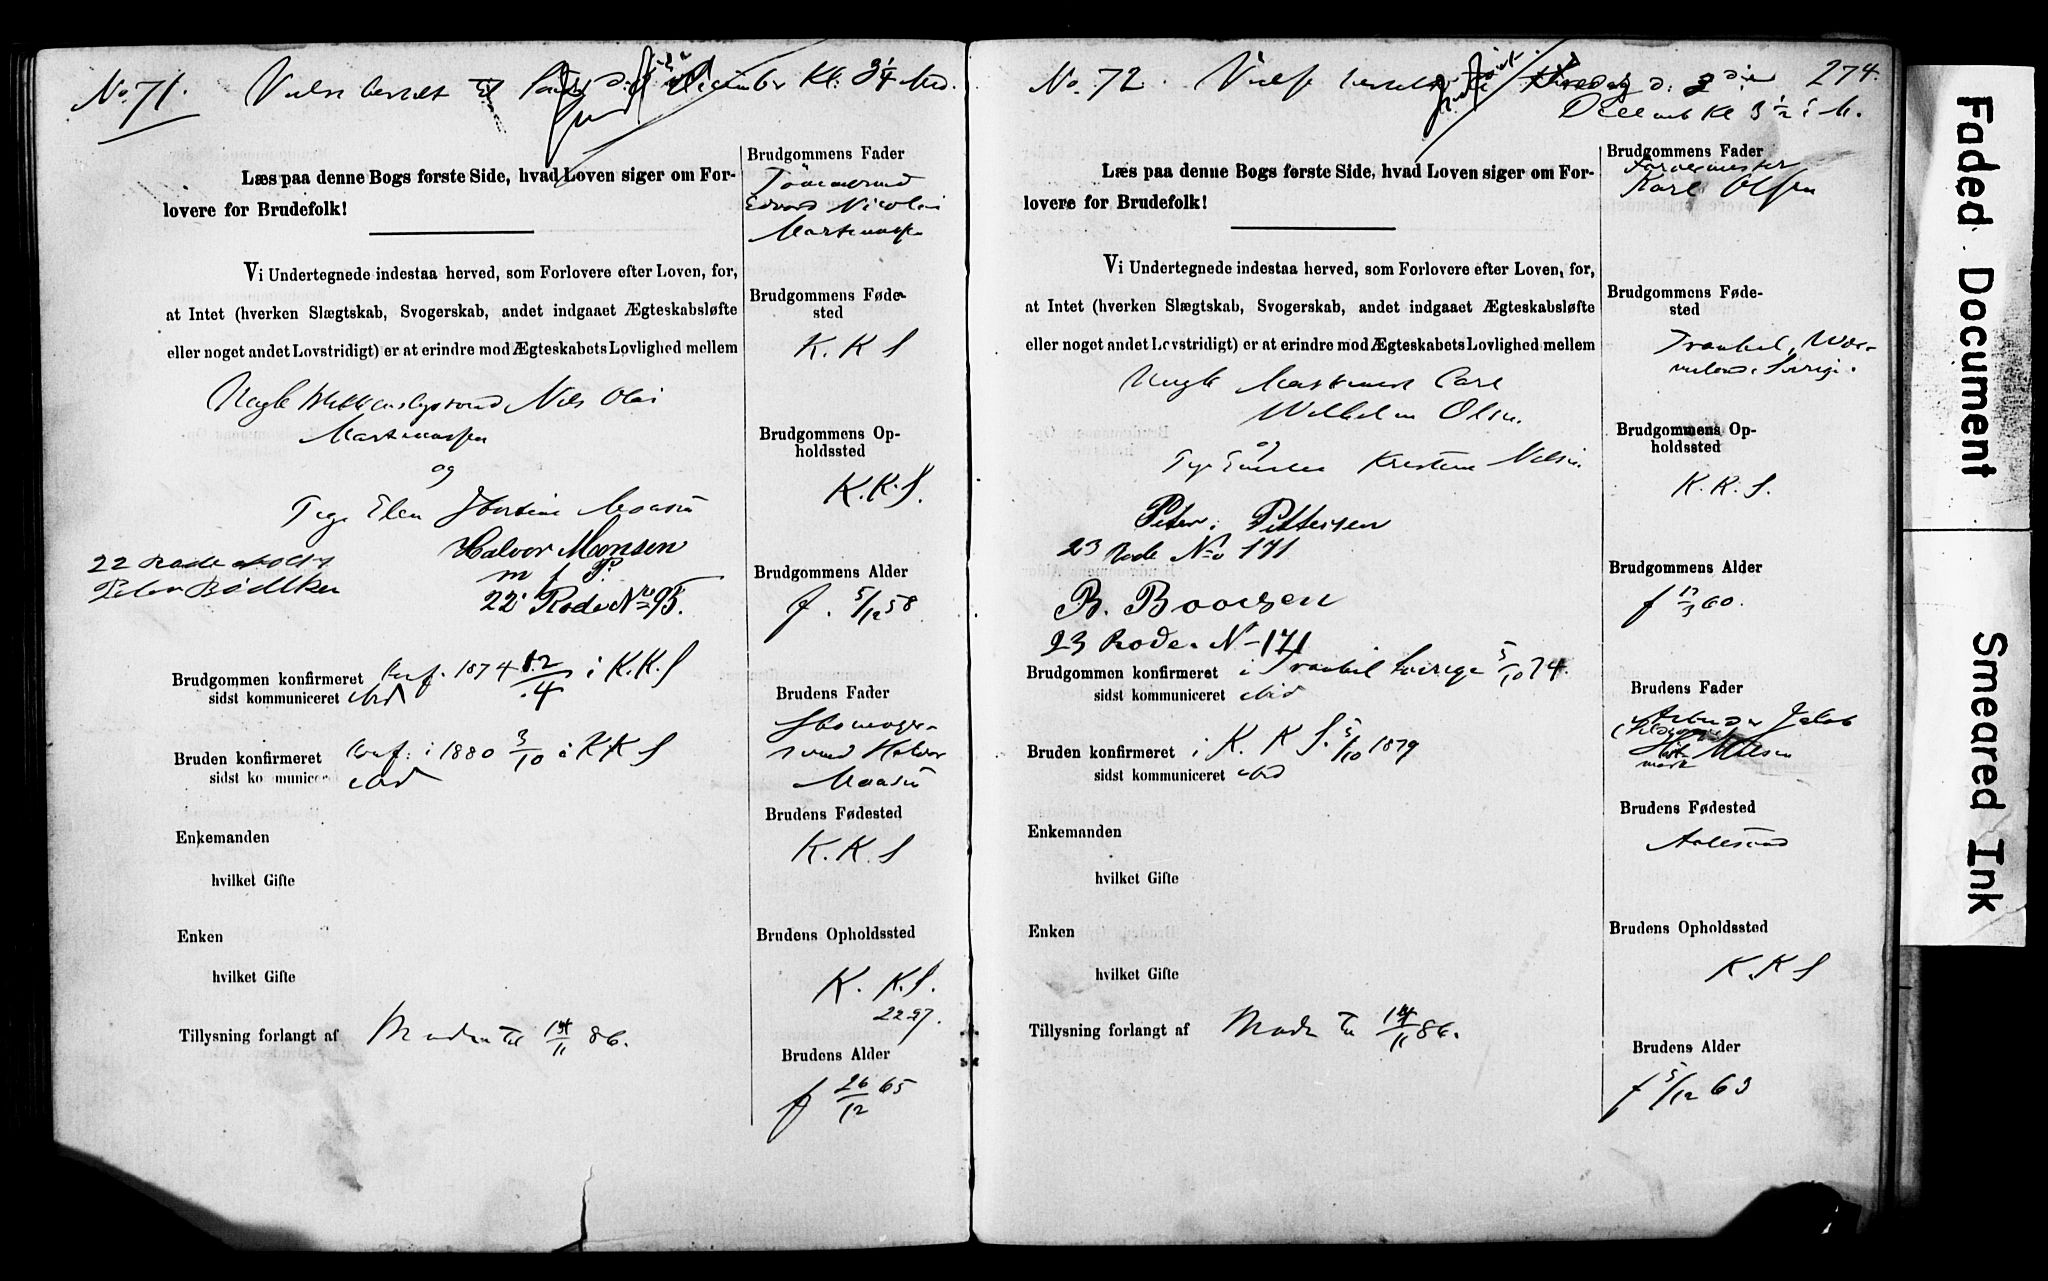 No. 71. Vielse bestilt til December Kl: 3 1/4 Md.
Læs paa denne Bogs første Side, hvad Loven siger om For-
lovere for Brudefolk!
Vi Undertegnede indestaa herved, som Forlovere efter Loven, for,
at Intet (hverken Slægtskab, Svogerskab, andet indgaaet Ægteskabsløfte
eller noget andet Lovstridigt) er at erindre mod Ægteskabets Lovlighed mellem
Nils Olai
Martinussen
og
Pige Elen Monsen
Halvor Monsen
m f P.
22 Rode No 95.
22 Rode
Peter Bødtker
Brudgommen konfirmeret Conf. 1874 12/4 i K.K.S
sidst kommuniceret ibid
Bruden konfirmeret Conf: i 1880 3/10 i K.K.S
sidst kommuniceret ibid
Enkemanden
hvilket Gifte
Enken
hvilket Gifte
Tillysning forlangt af 14/11 86.
Brudgommens Fader
Tømmermd
Edvard Nicolai
Martinussen
Brudgommens Føde-
sted
K. K S
Brudgommens Op-
holdssted
K.K.S.
Brudgommens Alder
f. 5/12 58
Brudens Fader
Halvor
Monsen
Brudens Fødested
K.K.S
Brudens Opholdssted
K. K.S.
2297.
Brudens Alder
f 26/12 65
No. 72. Vielse bestilt d. 2 den 274.
Decemb Kl 3 1/2 M.
Læs paa denne Bogs første Side, hvad Loven siger om For-
lovere for Brudefolk!
Vi Undertegnede indestaa herved, som Forlovere efter Loven, for,
at Intet (hverken Slægtskab, Svogerskab, andet indgaaet Ægteskabsløfte
eller noget andet Lovstridigt) er at erindre mod Ægteskabets Lovlighed mellem
Ungk Carl
Wilhelm Olsen
og
Pige Kristine Nilsen
Peter. Pettersen
23 Rode No 171
B. Boorsen
23 Rode. N- 171
Brudgommen konfirmeret i Sverige 5/10 74.
sidst kommuniceret ibid
Bruden konfirmeret i K. K S. 5/10 1879
sidst kommuniceret ibid
Enkemanden
hvilket Gifte
Enken
hvilket Gifte
Tillysning forlangt af 14/11 86.
Brudgommens Fader
Karl Olsen
Brudgommens Føde-
sted
Wer-
meland Sverige.
Brudgommens Op-
holdssted
K. K. S.
Brudgommens Alder
f 17/3 60.
Brudens Fader
Arbeider Jakob
Nilsen
Brudens Fødested
Aalesund
Brudens Opholdssted
K.K S
Brudens Alder
f 5/12 63
Faded Document
Smeared Ink